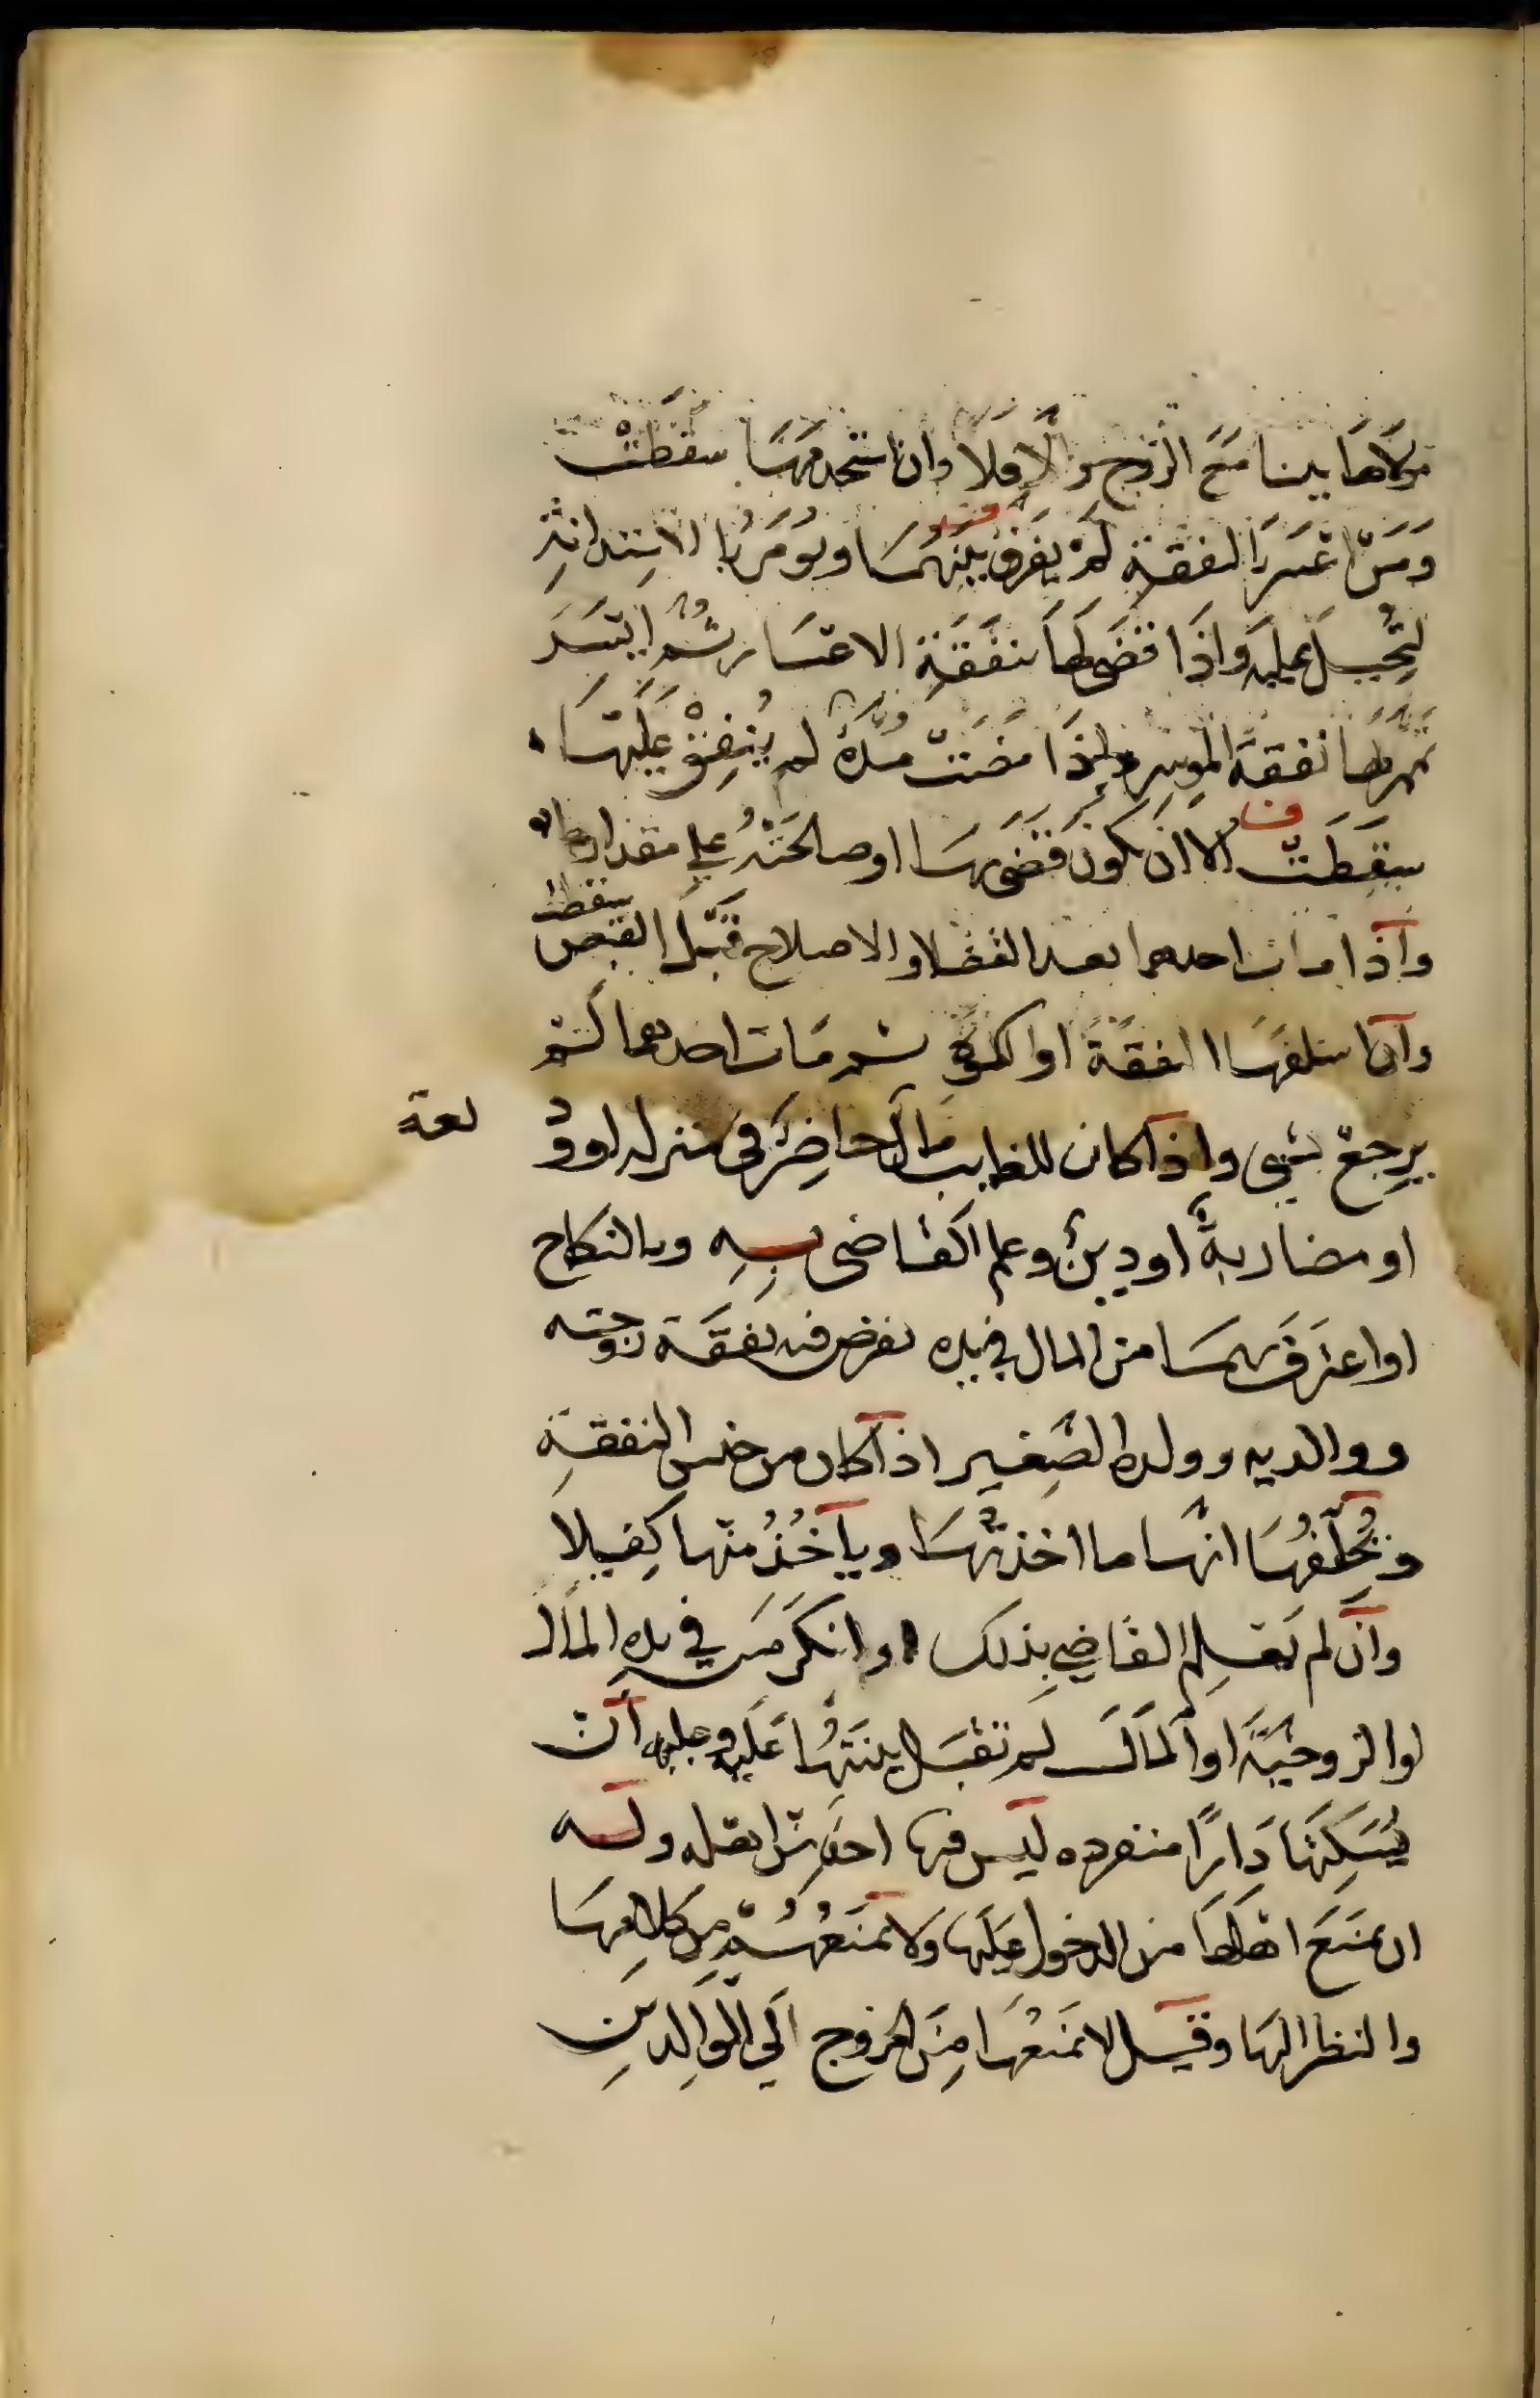 مولاها بيتا مع الزوج والا فلا وان استخدمها سقطت
ومن اعسر بالنفقة لم يفرق بينهما ويومر بالاستدانة
لتحيل عليه واذا قضى لها بنفقة الاعسار ثم ايسر
تمم لها نفقة الموسر واذا مضت مدة لم ينفق عليها
سقطت الا ان يكون قضى بها او صالحته على مقدارها
واذا مات احدهما بعد القضاء او الاصلاح قبل القبض سقطت
وان اسلفها النفقة او الكسوة ثم مات احدهما لم
يرجع بشي واذا كان للغايب مال حاضر في منزله او ود
يعة
او مضاربة او دين وعلم القاضي به وبالنكاح
او اعترف بهما من المال في يده يفرض فيه نفقة زوجته
ووالديه وولده الصغير اذا كان من جنس النفقة
ويحلفها انها ما اخذتها وياخذ منها كفيلا
وان لم يعلم القاضي بذلك او انكر من في يده المال
او الزوجية او المال لم تقبل بينتها عليه وعليه ان
يسكنها دارا منفرده ليس فيها احد من اهله وله
ان يمنع اهلها من الدخول عليها ولا يمنعهم من كلامها
والنظر اليها وقيل لا يمنعها من الخروج الى الوالدين